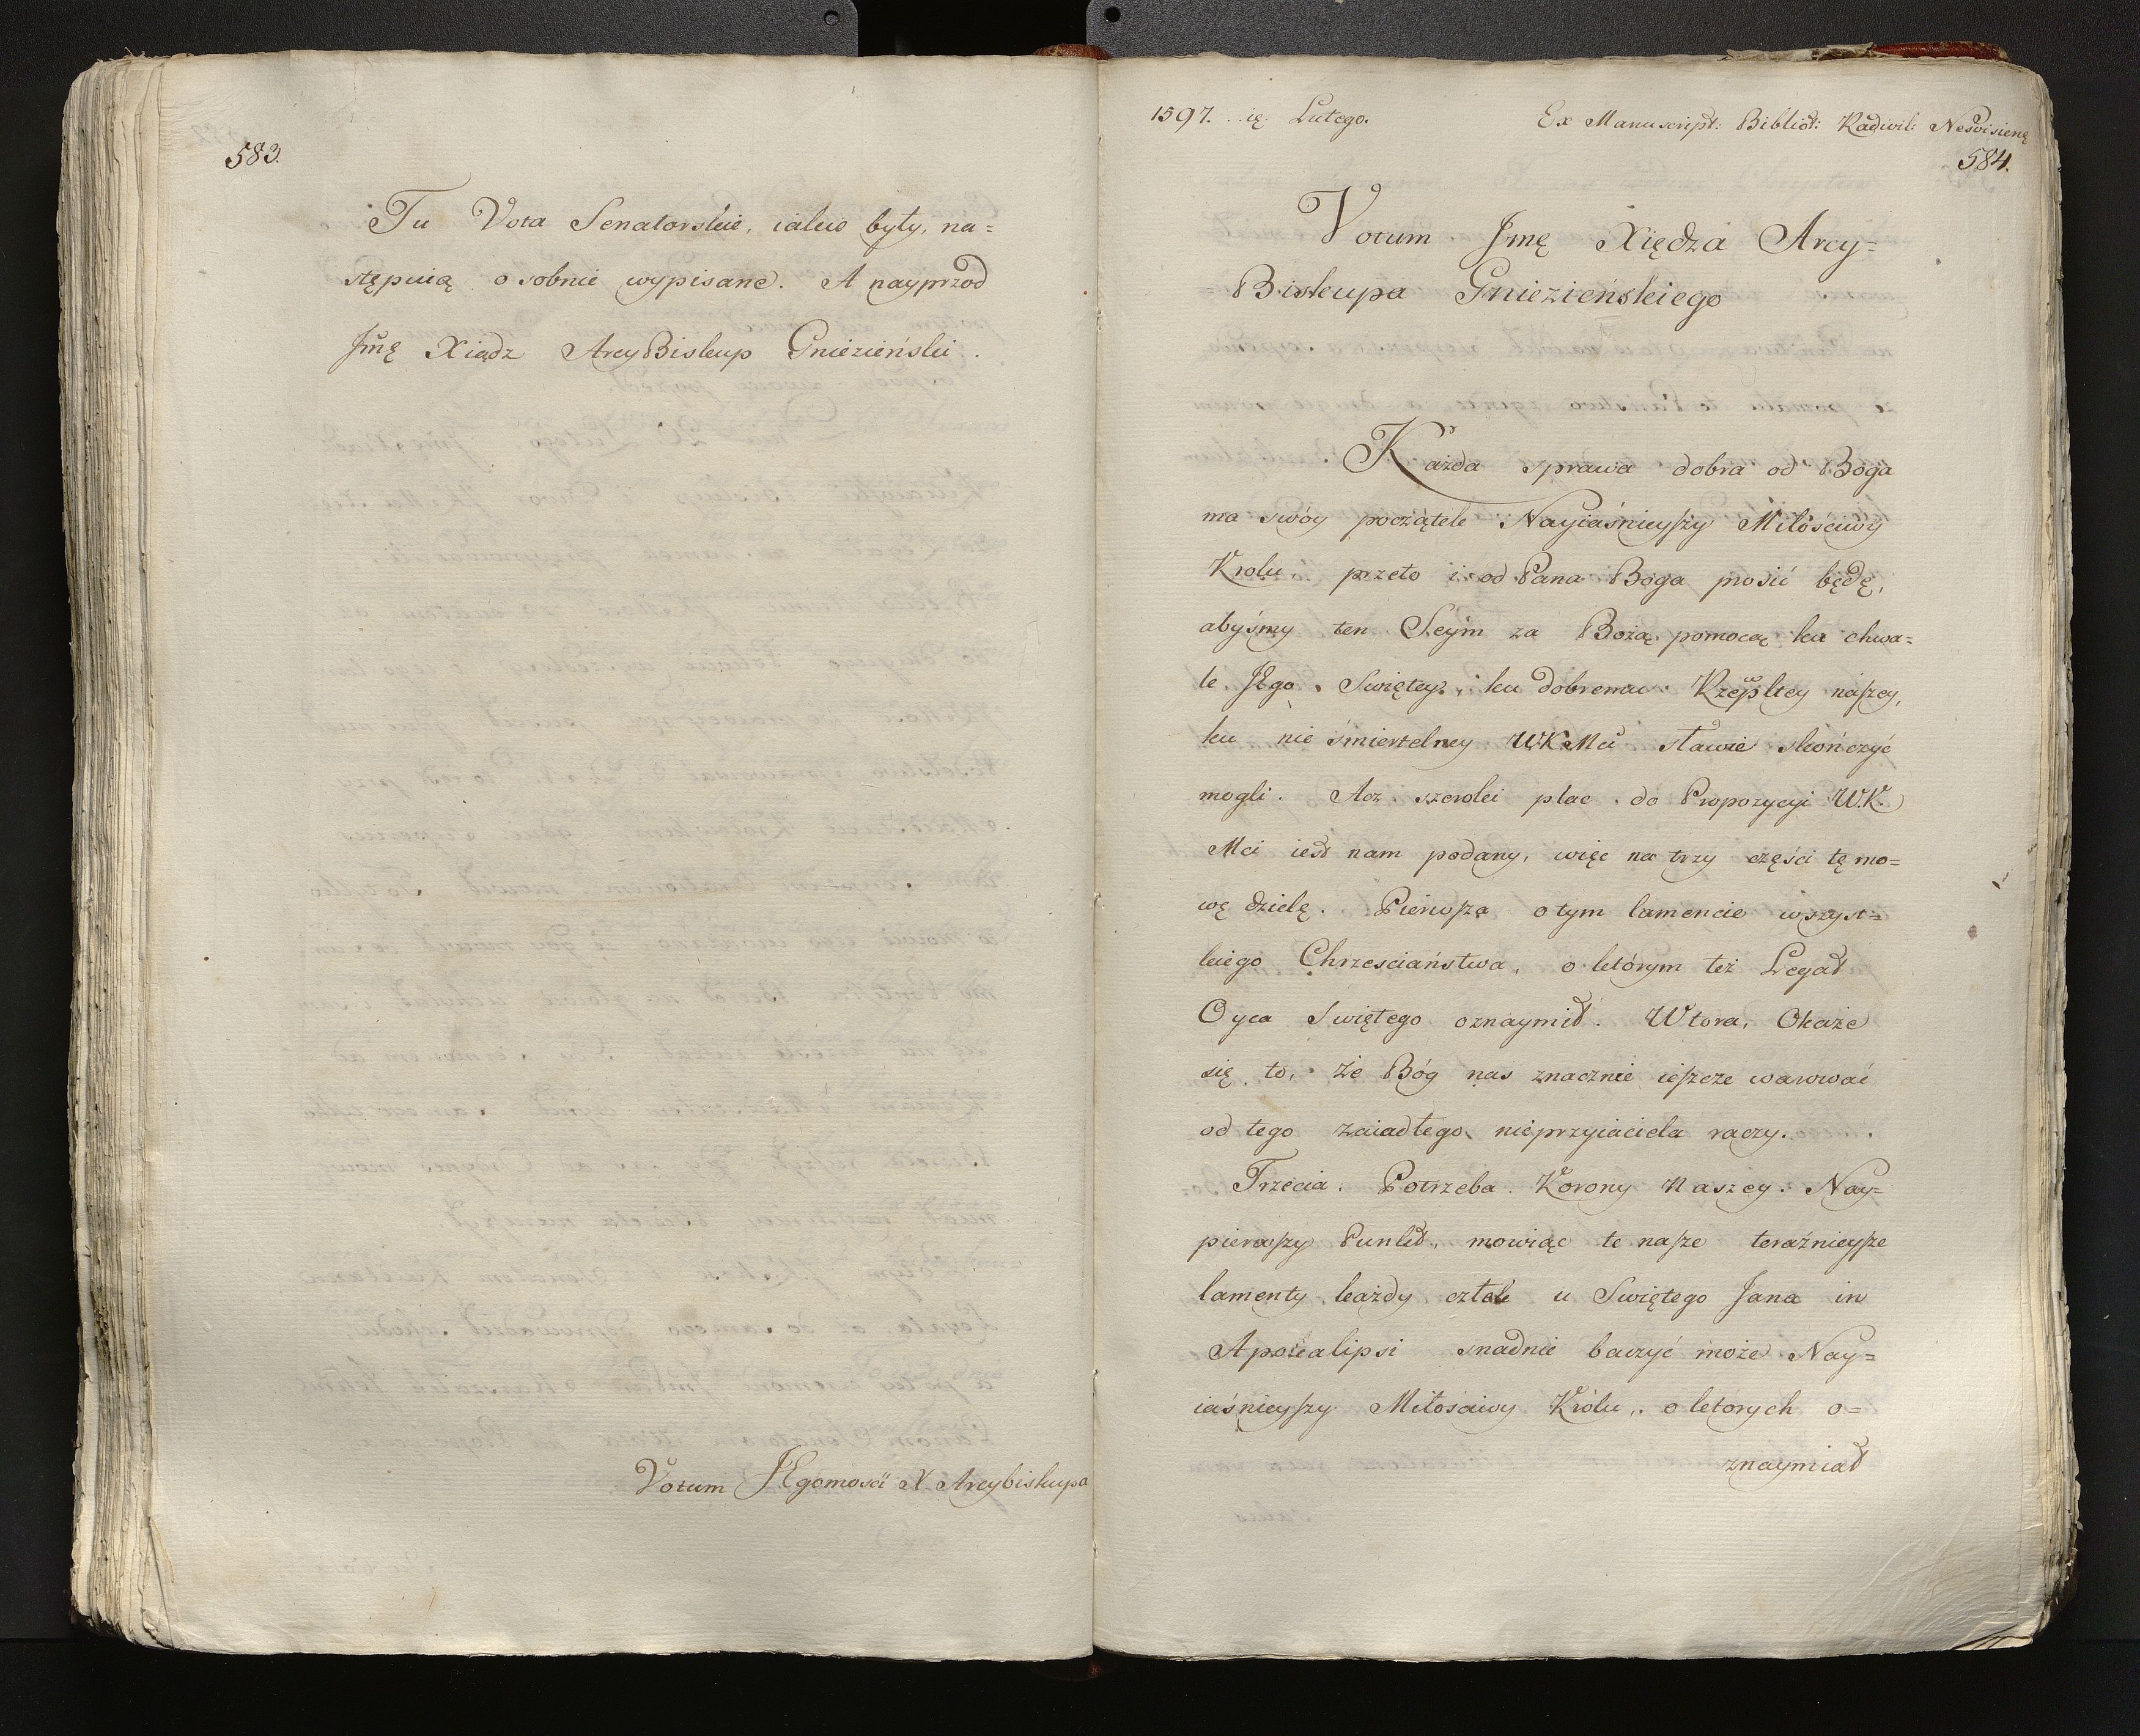 583.
Tu Vota Senatorskie, iakie były, na=
stępuią osobnie wypisane. A nayprzod
Jmę Xiądz ArcyBiskup Gniezieński.
Votum JEgomości X Arcybiskupa
1597. Lutego.
Ex Manuscript: Bibliot: Radivil: Nesvisienę
584.
Votum Jmę Xiędza Arcy=
Biskupa Gniezieńskiego
Każda sprawa dobra od Boga
ma swóy początek Nayiaśnieyszy Miłościwy
Krolu. przeto i od Pana Boga prosić będę,
abyśmy ten Seym za Bożą pomocą ku chwa=
le JEgo Swiętey, ku dobremu Rzepltey naszey,
ku nie śmiertelney WKMci sławie skończyć
mogli. Acz szeroki plac do Propozycyi W.K.
Mci iest nam podany, więc na trzy części tę mo=
wę dzielę. Pierwsza o tym lamencie wszyst=
kiego Chrzesciaństwa, o którym też Legat
Oyca Swiętego oznaymił. Wtora, Okaże
się to, że Bóg nas znacznie ieszcze warować
od tego zaiadłego nieprzyiaciela raczy.
Trzecia. Potrzeba Korony Naszey. Nay=
pierwszy Punkt, mowiąc te nasze teraźnieysze
lamenty każdy człek u Swiętego Jana in
Apokalipsi snadnie baczyć może Nay=
iaśnieyszy Miłościwy Królu, o których o=
znaymiał